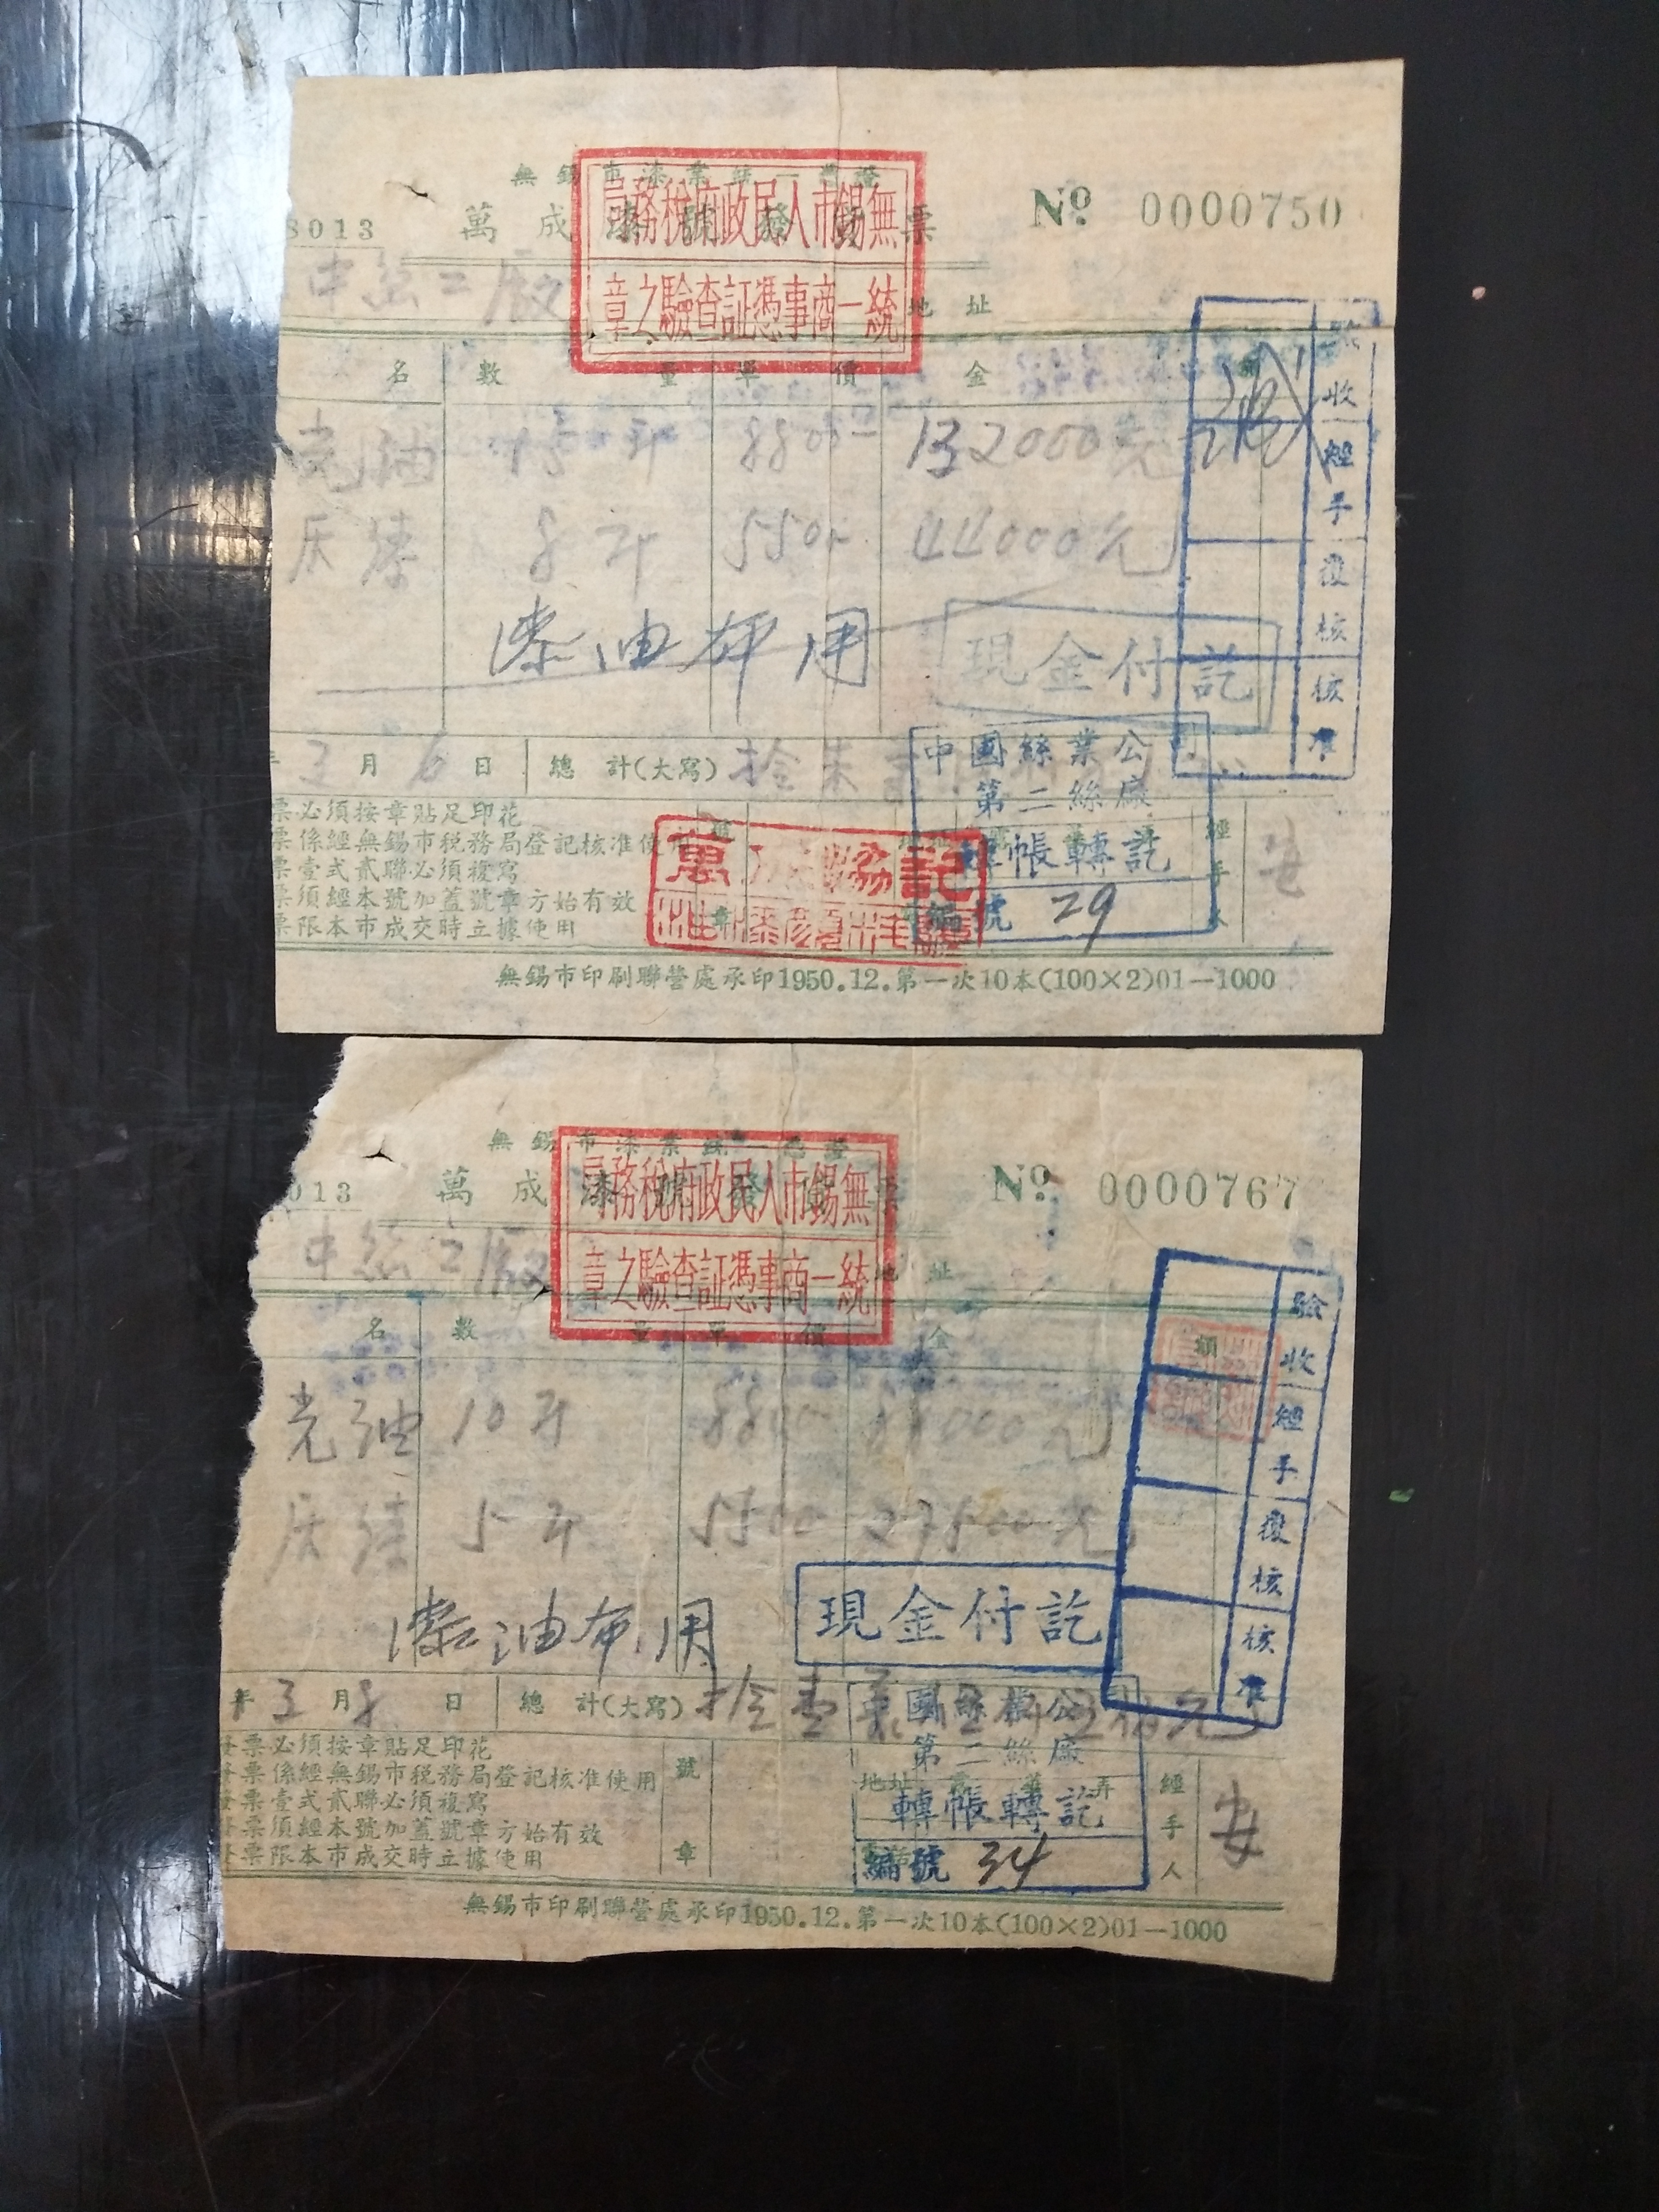 無錫市漆業統一憑證
8013 萬成漆號發貨票 No. 0000750
無錫市人民政府稅務局
統一商事憑証查驗之章
中絲二廠 地址
名 數量 單價 金額
光油 15斤 8800 132000元
8斤 5500 44000元
漆油布用
現金付訖
驗收
經手
復核
核准
三月6日 總計(大寫) 拾柒
票必須按章貼足印花
票係經無錫市稅務局登記核准使用
票壹式貳聯必須複寫
票須經本號加蓋號章方始有效
票限本市成交時立據使用
號章
中國絲業公司
第二絲廠
轉帳轉訖
編號 29
經手人 安
無錫市印刷聯營處承印1950.12.第一次10本(100×2)01—1000
無錫市漆業統一憑證
013 萬成漆號發貨票 No. 0000767
無錫市人民政府稅務局
統一商事憑証查驗之章
中絲二廠 地址
名 數量 單價 金額
光油 10斤 8800 88000元
5斤 5500 27500元
漆油布用
現金付訖
驗收
經手
復核
核准
年三月8日 總計(大寫) 拾壹萬伍仟伍佰元
發票必須按章貼足印花
發票係經無錫市稅務局登記核准使用
發票壹式貳聯必須複寫
發票須經本號加蓋號章方始有效
發票限本市成交時立據使用
號章
地址
國絲業公司
第二絲廠
轉帳轉訖
編號 34
經手人 安
無錫市印刷聯營處承印1950.12.第一次10本(100×2)01—1000